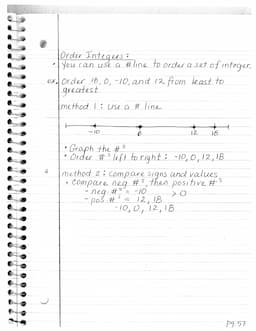 Order Integers:
• You can use a # line to order a set of integers.
ex. Order 18, 0, -10, and 12 from least to
greatest
method 1: use a # line
-10 0 12 18
• Graph the #s
• Order #s left to right: -10, 0, 12, 18
method 2: compare signs and values
• compare neg. #s, then positive #s
- neg. #s = -10 > 0
- pos. #s = 12, 18
-10, 0, 12, 18
pg 57